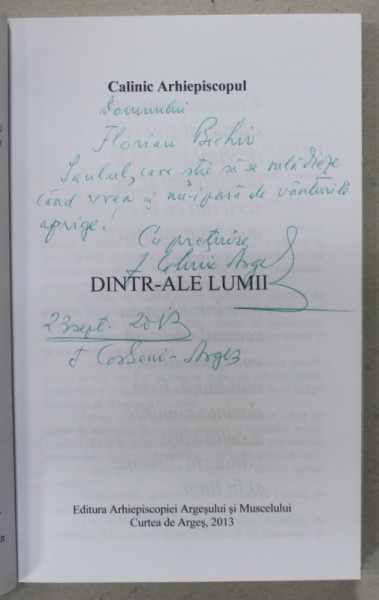 Calinic Arhiepiscopul
Domnului
Florian Bichir
care știe să se mlădieze
când vrea și nu-i pasă de vânturile
aprige.
Cu prețuire
† Calinic Argeș
DINTR-ALE LUMII
23 sept. 2013
† Corbeni-Argeș
Editura Arhiepiscopiei Argeșului și Muscelului
Curtea de Argeș, 2013